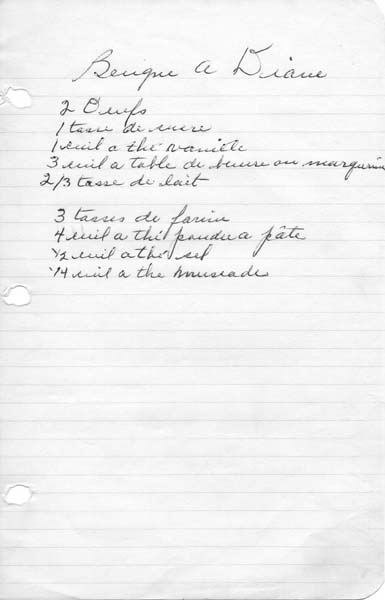 Beigne a Diane
2 Oeufs
1 tasse de sucre
1 cuil a thé vanille
3 cuil a table de beurre ou margarine
2/3 tasse de lait
3 tasses de farine
4 cuil a thé poudre a pâte
1/2 cuil a thé sel
1/4 cuil a the muscade